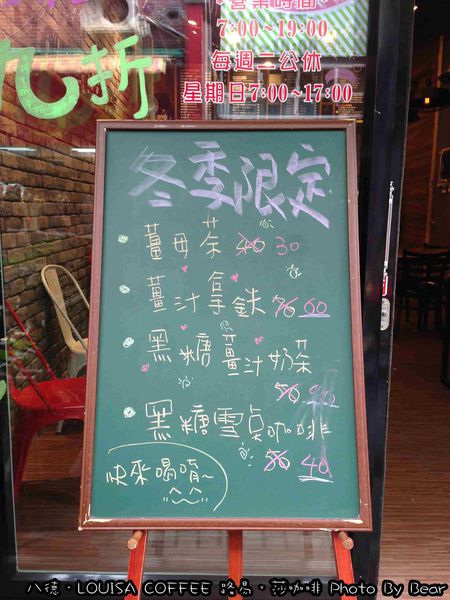 營業時間
7:00~19:00
每週二公休
星期日7:00~17:00
九折
冬季限定
薑母茶 40 30
薑汁拿鉄 70 60
黑糖薑汁奶茶
50 40
黑糖雪貞咖啡
50 40
快來喝唷~
^^
八德‧LOUISA COFFEE 路易‧莎咖啡 Photo By Bear